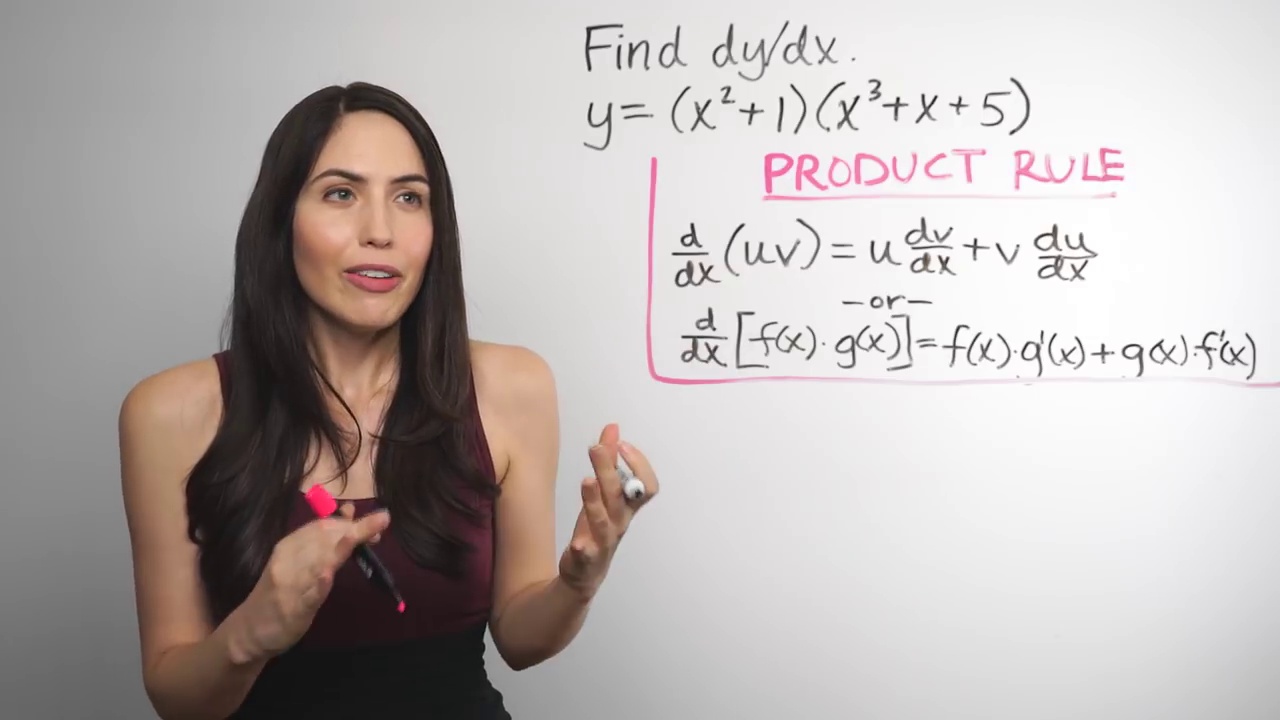 Find dy/dx.
y= (x²+1)(x³+x+5)
PRODUCT RULE
d/dx (uv) = u dv/dx + v du/dx
-or-
d/dx [f(x)·g(x)] = f(x)·g'(x) + g(x)·f'(x)